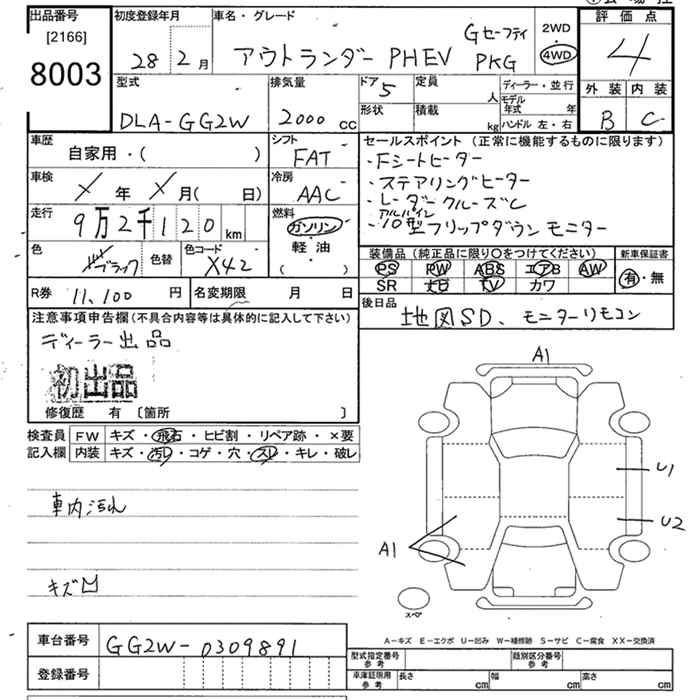 出品番号
[2166]
8003
初度登録年月
28 2月
車名・グレード
アウトランダーPHEV
Gセーフティ PKG
2WD
4WD
評価点
4
外装 内装
B C
型式
DLA-GG2W
排気量
2000 CC
ドア 5
定員 人
形状
積載 kg
ディーラー・並行
モデル年式 年
ハンドル 左・右
車歴
自家用・( )
シフト
FAT
車検
X年X月( 日)
冷房
AAC
走行
9万2千120 km
燃料
ガソリン
軽油
( )
色
ブラック
色替
色コード
X42
R券 11,100 円
名変期限 月 日
セールスポイント (正常に機能するものに限ります)
・Fシートヒーター
・ステアリングヒーター
・レーダクルーズC
アルパイン
・10型フリップダウンモニター
装備品 (純正品に限り〇をつけてください)
PS PW ABS エアB AW
SR ナビ TV カワ
新車保証書
有・無
後日品
地図SD、モニターリモコン
注意事項申告欄(不具合内容等は具体的に記入して下さい)
ディーラー出品
初出品
修復歴 有 〔箇所 〕
検査員記入欄
FW キズ・飛石・ヒビ割・リペア跡・×要
内装 キズ・汚レ・コゲ・穴・スレ・キレ・破レ
車内汚れ
キズ凹
A1
U1
U2
A1
スペ
A-キズ E-エクボ U-凹み W-補修跡 S-サビ C-腐食 XX-交換済
車台番号 GG2W-0309891
登録番号
型式指定番号 参考
類別区分番号 参考
車庫証明用 参考 長さ cm 幅 cm 高さ cm